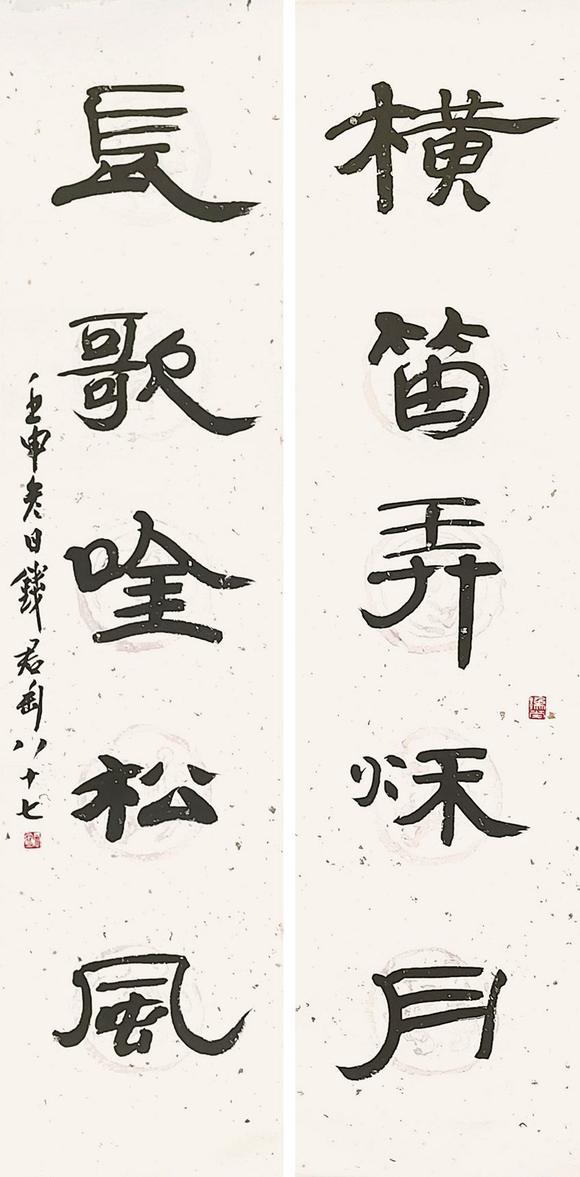 横笛弄秌月
長歌唫松風
壬申冬日錢君匋八十七